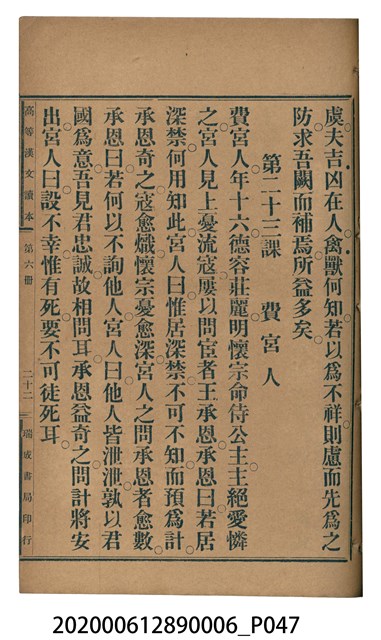 虞夫吉凶在人禽獸何知若以爲不祥則慮而先爲之
防求吾闕而補焉所益多矣
第二十三課　費宮人
費宮人年十六德容莊麗明懷宗命侍公主主絕愛憐
之宮人見上憂流寇屢以問宦者王承恩承恩曰若居
深禁何用知此宮人曰惟居深禁不可不知而預爲計
承恩奇之寇愈熾懷宗憂愈深宮人之問承恩者愈數
承恩曰若何以不詢他人宮人曰他人皆泄泄孰以君
國爲意吾見君忠誠故相問耳承恩益奇之問計將安
出宮人曰設不幸惟有死要不可徒死耳
高等漢文讀本　第六冊　二十二　瑞成書局印行
202000612890006_P047